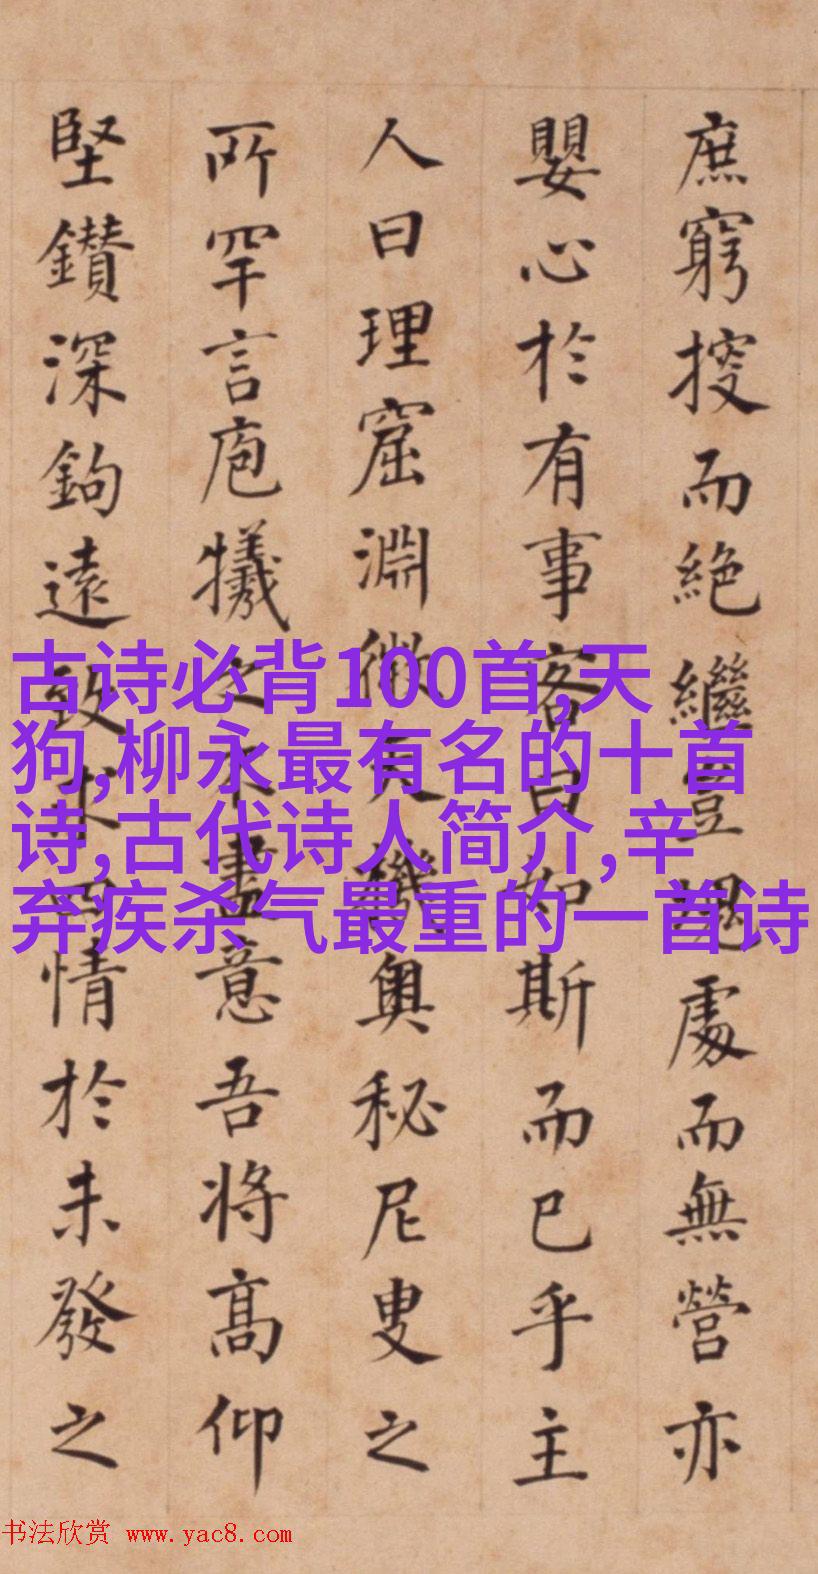 庶窮搜而絶繼豈處而無營亦
嬰心於有事客曰如斯而已乎主
人曰理窟淵微天機奧秘尼叟之
所罕言庖犧不盡意吾将髙仰
堅鑽深鉤遠致求情於未發之
古诗必背100首,天
狗,柳永最有名的十首
诗,古代诗人简介,辛
弃疾杀气最重的一首诗
书法欣赏 www.yac8.com